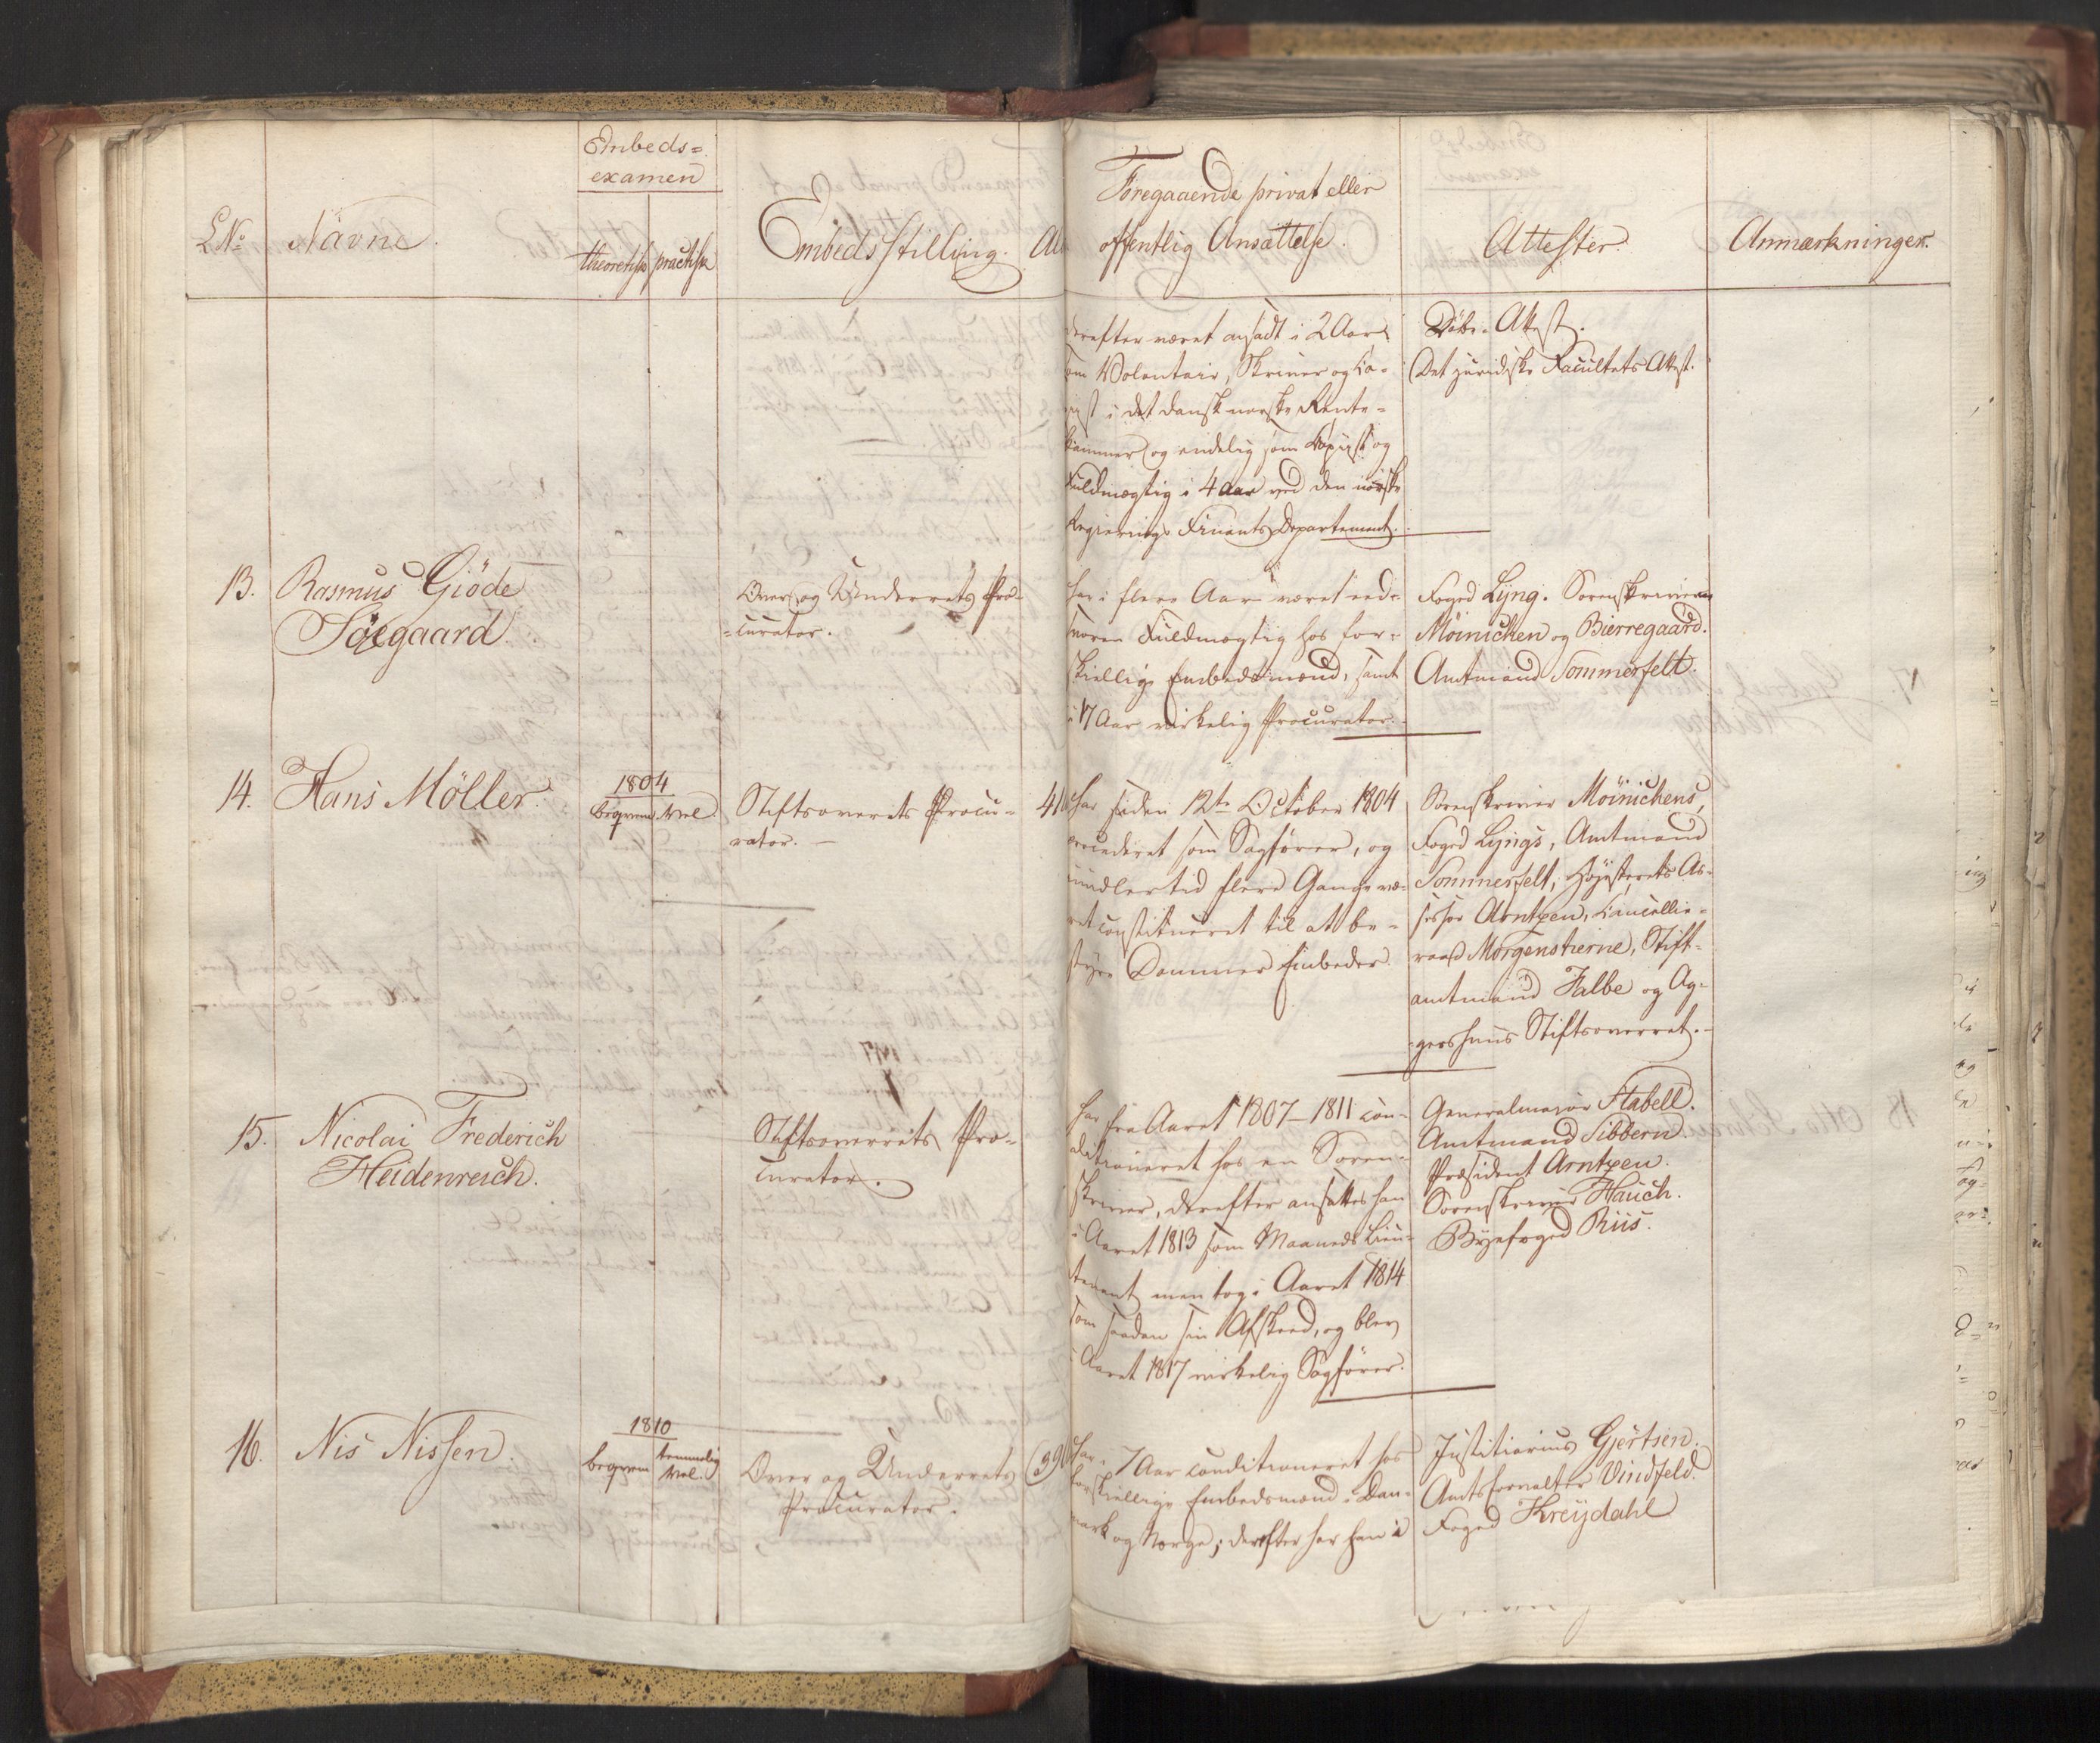 Embeds=
examen
L No
Navne.
theoretisk
practisk
Embedsstilling.
Foregaaende privat eller
offentlig Ansættelse.
Attester.
Anmærkninger.
derefter været ansadt i 2 Aar
som Volontair, Skriver og Co-
pist i det dansk norske Rente-
kammer og endelig som Copiist og
Fuldmægtig i 4 Aar ved den norske
Regierings Finants Departement.
Døbe-Attest.
Det juridiske Facultets Attest.
13.
Rasmus Giöde
Söegaard.
Over og Underrets Pro-
=curator.
har i flere Aar været eed-
svoren Fuldmægtig hos for-
skiellige Embedsmænd, samt
i 17 Aar virkelig Procurator.
Foged Lyng. Sorenskriverne
Möinichen og Bierregaard.
Amtmand Sommerfelt.
14.
Hans Möller.
1804
beqvem
vel.
Stiftsoverrets Procu-
rator.
41
har siden 12te October 1804
procederet som Sagfører, og
imidlertid flere Gange væ-
ret constitueret til at be-
styre Dommer Embeder.
Sorenskriver Möinichens,
Foged Lyngs, Amtmand
Sommerfelt, Højesterets As-
sessor Arntzen, Cancellie-
raad Morgenstierne, Stift-
amtmand Falbe og Ag-
gershuus Stiftsoverret.
15.
Nicolai Frederich
Heidenreich.
Stiftsoverrets Pro-
curator.
har fra Aaret 1807-1811 con-
ditioneret hos en Soren-
skriver, derefter ansattes han
i Aaret 1813 som Maaneds Lieu-
tenant men tog i Aaret 1814
som saadan sin Afskeed, og blev
i Aaret 1817 virkelig Sagfører.
Generalmajor Stabell.
Amtmand Sibbern.
Præsident Arntzen.
Sorenskriver Hauch.
Byefoged Riis.
16.
Nis Nissen.
1810
beqvem
temmelig
vel.
Over og Underrets
Procurator.
39
har i 7 Aar conditioneret hos
forskiellige Embedsmænd i Dan-
mark og Norge; derefter har han i
Justitiarius Gjertsen.
Amtsforvalter Vindfeld.
Foged Kreydahl